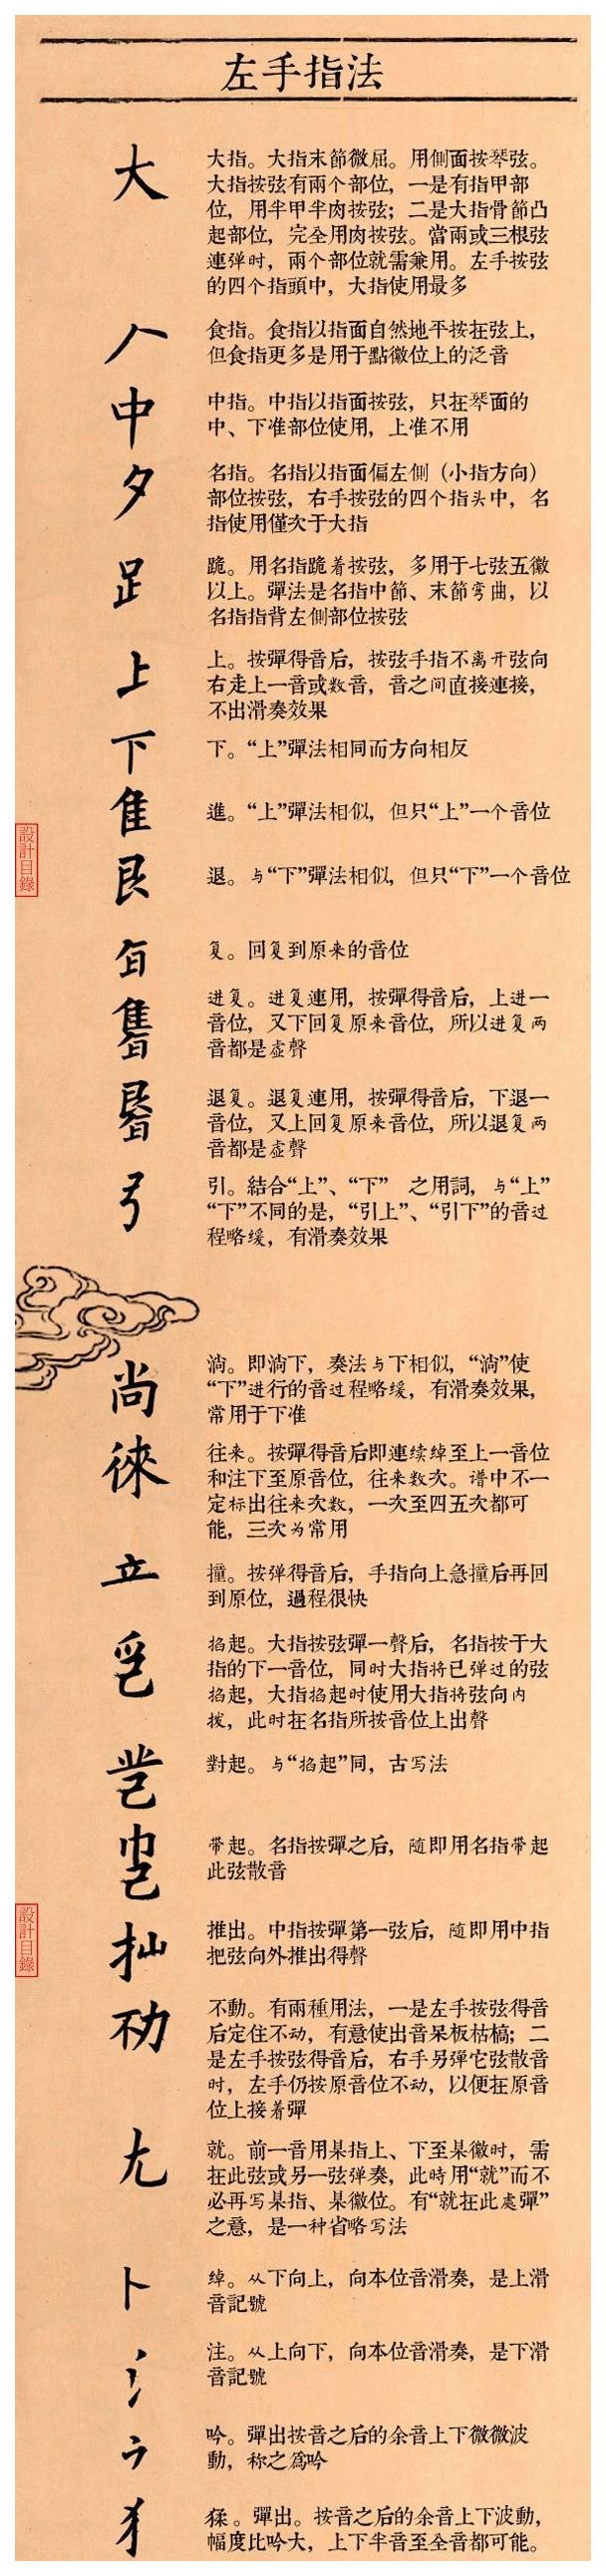 左手指法
大
大指。大指末節微屈。用側面按琴弦。
大指按弦有兩个部位，一是有指甲部
位，用半甲半肉按弦；二是大指骨節凸
起部位，完全用肉按弦。當兩或三根弦
連弹时，兩个部位就需兼用。左手按弦
的四个指頭中，大指使用最多
𠂉
食指。食指以指面自然地平按在弦上，
但食指更多是用于點徽位上的泛音
中
中指。中指以指面按弦，只在琴面的
中、下准部位使用，上准不用
夕
名指。名指以指面偏左側（小指方向）
部位按弦，右手按弦的四个指头中，名
指使用僅次于大指
𧾷
跪。用名指跪着按弦，多用于七弦五徽
以上。彈法是名指中節、末節弯曲，以
名指指背左側部位按弦
上
上。按彈得音后，按弦手指不离开弦向
右走上一音或数音，音之间直接連接，
不出滑奏效果
下
下。“上”彈法相同而方向相反
隹
進。“上”彈法相似，但只“上”一个音位
設計目錄
艮
退。与“下”彈法相似，但只“下”一个音位
复。回复到原来的音位
进复。进复連用，按彈得音后，上进一
音位，又下回复原来音位，所以进复两
音都是虚聲
退复。退复連用，按彈得音后，下退一
音位，又上回复原来音位，所以退复两
音都是虚聲
弓
引。結合“上”、“下” 之用詞，与“上”
“下”不同的是，“引上”、“引下”的音过
程略缓，有滑奏效果
尚
淌。即淌下，奏法与下相似，“淌”使
“下”进行的音过程略缓，有滑奏效果，
常用于下准
徠
往来。按彈得音后即連续绰至上一音位
和注下至原音位，往来数次。谱中不一
定标出往来次数，一次至四五次都可
能，三次为常用
立
撞。按弹得音后，手指向上急撞后再回
到原位，過程很快
掐起。大指按弦彈一聲后，名指按于大
指的下一音位，同时大指将已弹过的弦
掐起，大指掐起时使用大指将弦向内
拨，此时在名指所按音位上出聲
對起。与“掐起”同，古写法
带起。名指按彈之后，随即用名指带起
此弦散音
設計目錄
推出。中指按彈第一弦后，随即用中指
把弦向外推出得聲
不動。有兩種用法，一是左手按弦得音
后定住不动，有意使出音呆板枯槁；二
是左手按弦得音后，右手另弹它弦散音
时，左手仍按原音位不动，以便在原音
位上接着彈
尤
就。前一音用某指上、下至某徽时，需
在此弦或另一弦弹奏，此時用“就”而不
必再写某指、某徽位。有“就在此處彈”
之意，是一种省略写法
卜
绰。从下向上，向本位音滑奏，是上滑
音記號
氵
注。从上向下，向本位音滑奏，是下滑
音記號
吟。彈出按音之后的余音上下微微波
動，称之為吟
犭
猱。彈出。按音之后的余音上下波動，
幅度比吟大，上下半音至全音都可能。